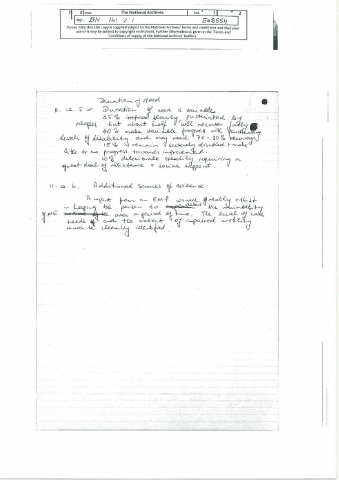 The National Archives
Ref.: BN 141 / 1
508554
Please note that this copy is supplied subject to the National Archives' terms and conditions and that your
use of it may be subject to copyright restrictions. Further information is given in the 'Terms and
Conditions of supply of the National Archives' leaflets
Duration of need
11. 12. 5. Duration of need is variable
25% improve steadily punctuated by
relapses but about half will recover fully
60% make variable progress with
levels of disability and may reach 70-80% recovery
15% remain severely disabled & make
little or no progress towards improvement.
10% deteriorate steadily requiring a
great deal of assistance & social support.
11. 12. 6. Additional sources of evidence
A report from an EMP would greatly assist
in helping the person to the variability
of ME over a period of time. The level of care
needs and the extent of impaired mobility
must be clearly identified.